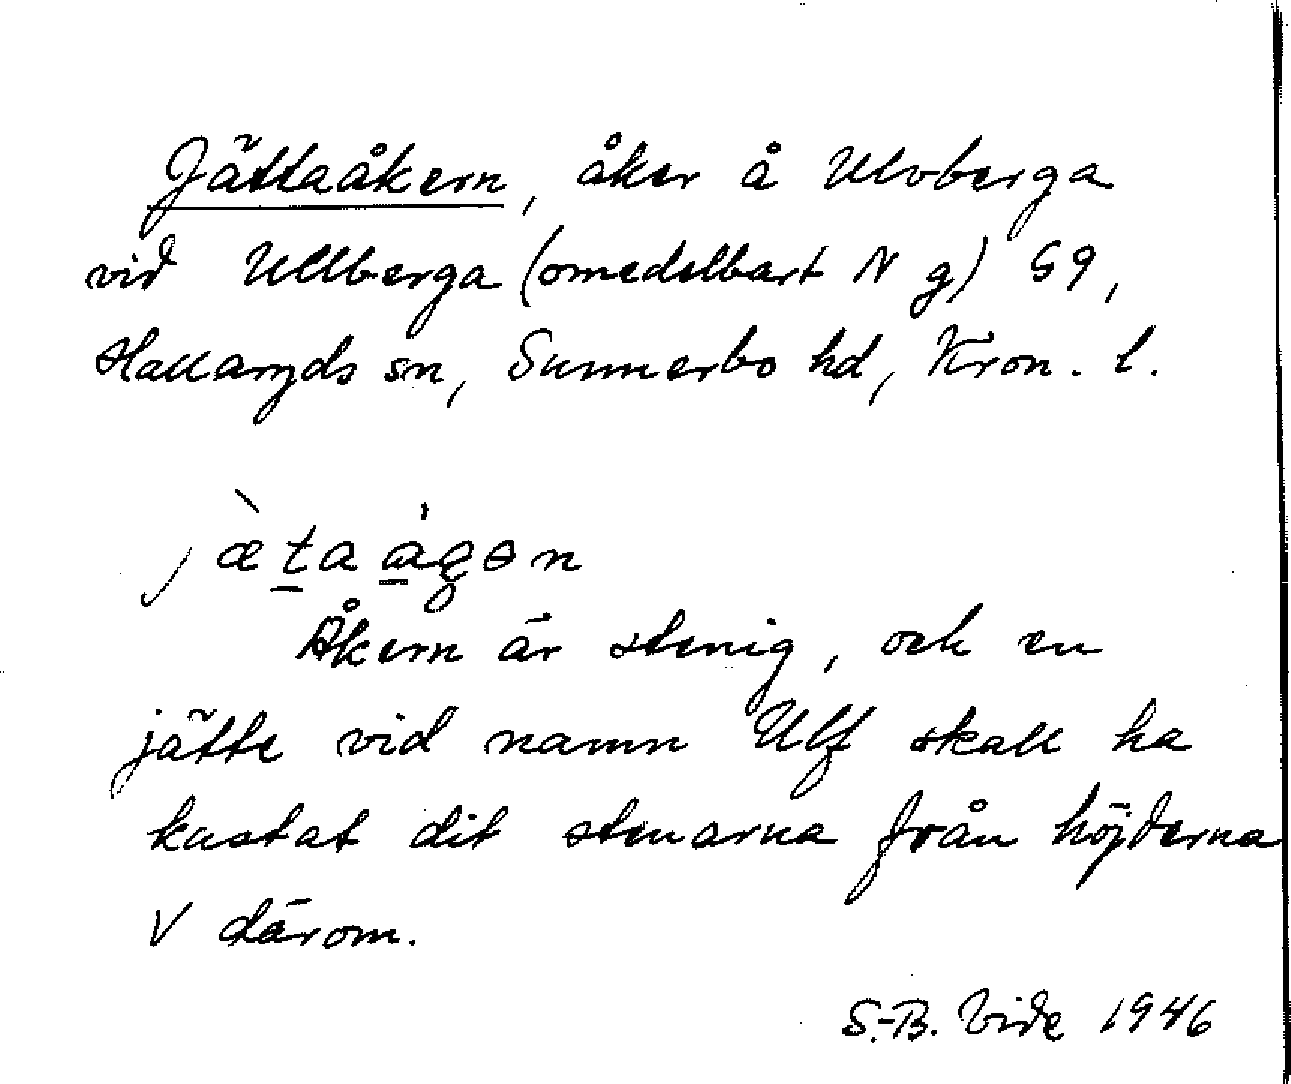 Jättaåkern, åker å Ulvberga
vid Ullberga (omedelbart N g) G9,
Hallaryds sn, Sunnerbo hd, Kron. l.
jæ̀ta ágən
Åkern är stenig, och en
jätte vid namn Ulf skall ha
kastat dit stenarna från höjderna
V därom.
S.-B. Vide 1946